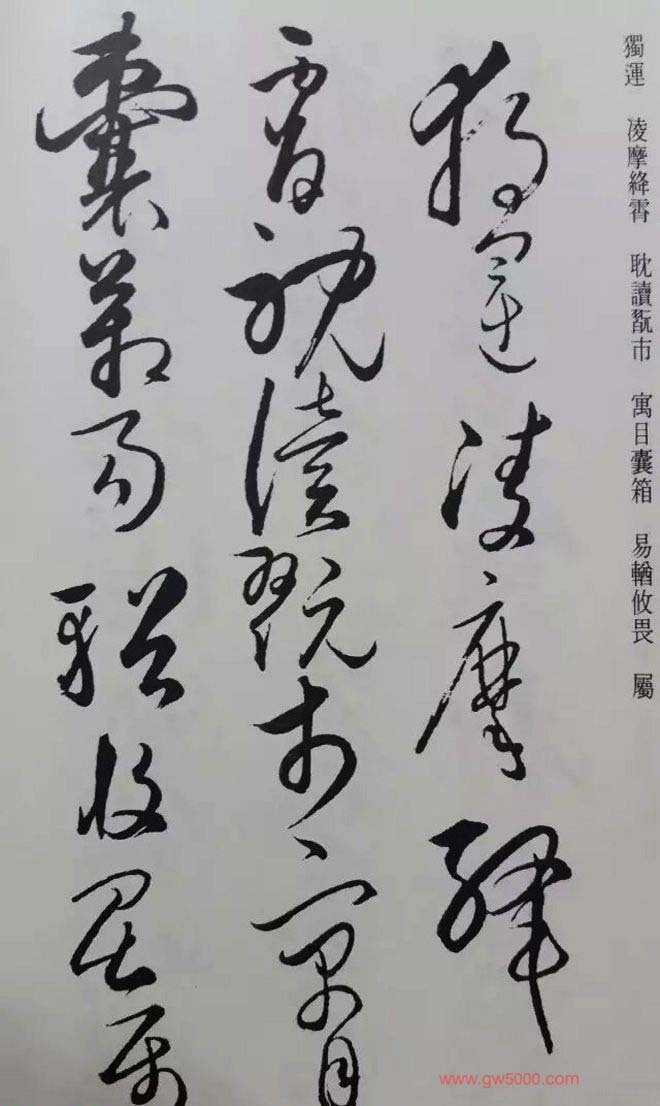 獨運　凌摩絳霄　耽讀翫市　寓目囊箱　易輶攸畏　屬
獨運凌摩絳
霄耽讀翫市寓目
囊箱易輶攸畏屬
www.gw5000.com